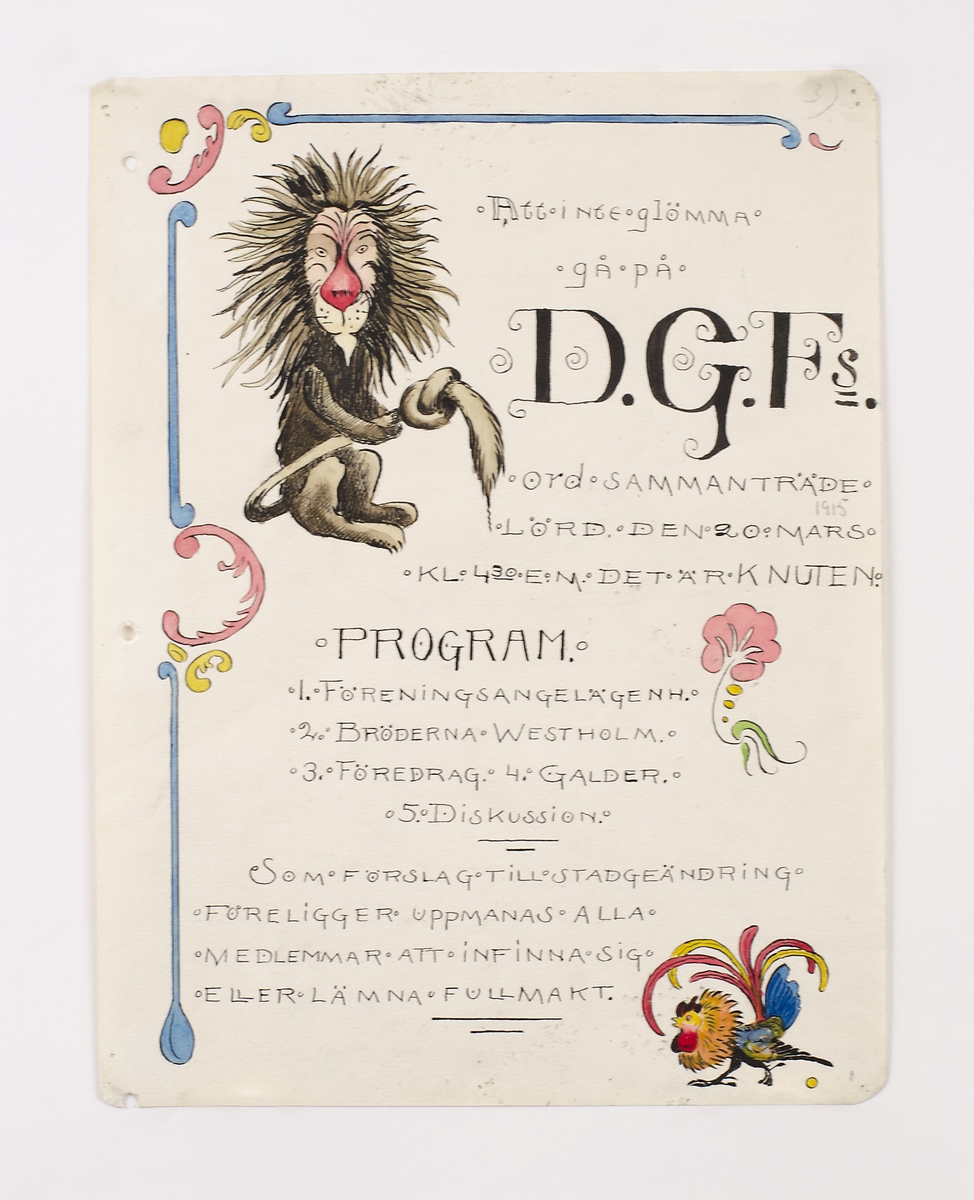 3)
Att inte glömma
gå på
D.G.Fs.
ord SAMMANTRÄDE
1915
LÖRD. DEN 20 MARS
KL. 4³⁰ E.M. DET ÄR KNUTEN.
PROGRAM.
1. FÖRENINGSANGELÄGENH.
2. BRÖDERNA WESTHOLM.
3. FÖREDRAG. 4. GALDER.
5. DISKUSSION.
SOM FÖRSLAG TILL STADGEÄNDRING
FÖRELIGGER UPPMANAS ALLA
MEDLEMMAR ATT INFINNA SIG
ELLER LÄMNA FULLMAKT.